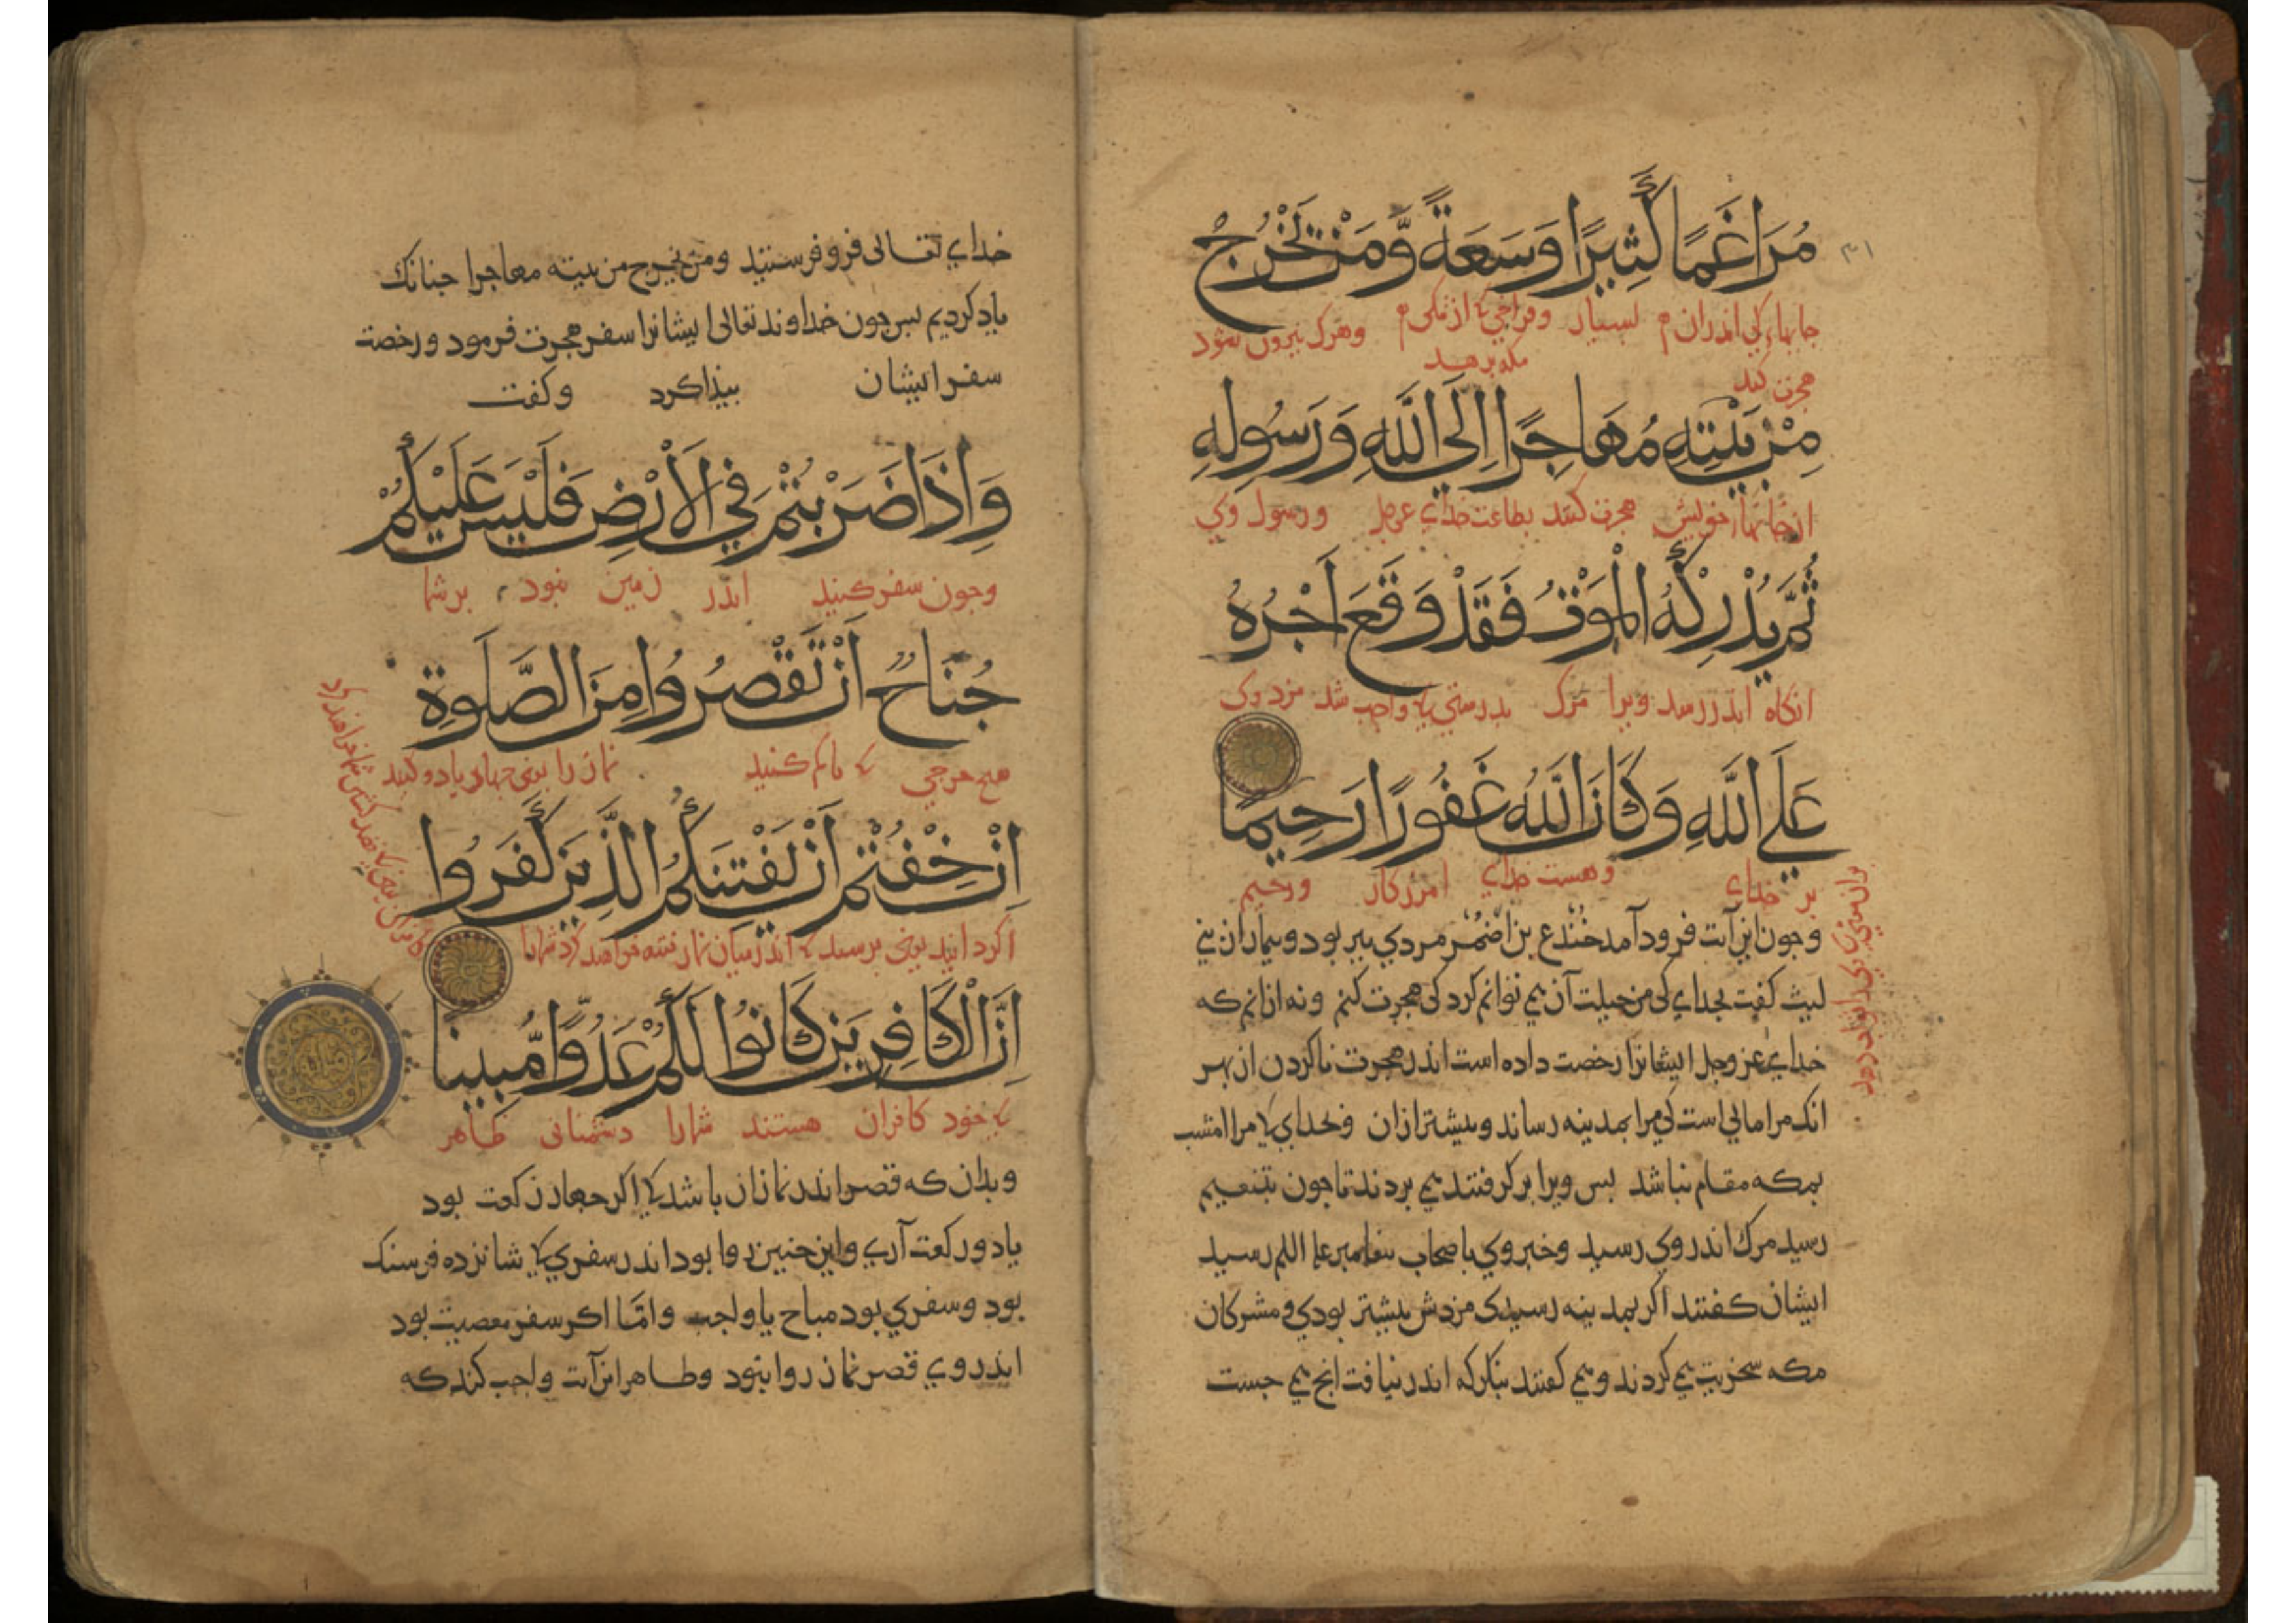 مُرَاغَمًا كَثِيرًا وَسَعَةً وَّمَنْ يَّخْرُجْ
بسیار وفراخی از تنکی وهرک بیرون شود
هجرت کند
مِنْ بَيْتِهِ مُهَاجِرًا اِلَى اللَّهِ وَرَسُولِهِ
خویش هجرت کنند بطاعت خدای عزوجل ورسول وی
ثُمَّ يُدْرِكْهُ الْمَوْتُ فَقَدْ وَقَعَ اَجْرُهُ
انکاه اندر رسد ویرا مرک بدرستی کی واجب شد مزد وی
عَلَى اللَّهِ وَكَانَ اللَّهُ غَفُورًا رَحِيمًا
بر خدای وهست خدای امرزکار ورحیم
وجون این آیت فرود آمد جُنْدَع بن ضَمْر مردی بیر بود وبیمار از بنی
لیث کفت بخدای کی من حیلت آن می توانم کرد کی هجرت کنم ونه ازانم که
خدای عزوجل ایشانرا رخصت داده است اندر هجرت ناکردن از بهر
انک مرا مالی است کی مرا بمدینه رساند وبیشتر ازان وبخدای کی مرا امشب
بمکه مقام نباشد بس ویرا بر کرفتند می بردند تا جون بتنعیم
رسید مرک اندر وی رسید وخبر وی باصحاب بیغامبر علیه السلم رسید
ایشان کفتند اکر بمدینه رسیدی مزدش بیشتر بودی ومشرکان
مکه سخریت می کردند ومی کفتند بنکر که اندر نیافت انج می جست
خدای تعالی فرو فرستید ومن یخرج من بیته مهاجرا جنانک
یاد کردیم بس جون خداوند تعالی ایشانرا سفر هجرت فرمود ورخصت
سفر ایشان بیذا کرد وکفت
وَاِذَا ضَرَبْتُمْ فِي الْاَرْضِ فَلَيْسَ عَلَيْكُمْ
وجون سفر کنید اندر زمین نبود بر شما
جُنَاحٌ اَنْ تَقْصُرُوا مِنَ الصَّلٰوةِ
هیج حرجی کی کم کنید نماز را یعنی جهار با دو کنید
اِنْ خِفْتُمْ اَنْ يَفْتِنَكُمُ الَّذِينَ كَفَرُوا
اکر دانید یعنی برسید کی اندر میان نماز فتنه خواهند کرد شمارا
اِنَّ الْكَافِرِينَ كَانُوا لَكُمْ عَدُوًّا مُّبِينًا
کی خود کافران هستند شمارا دشمنانی ظاهر
وبدان که قصر اندر نماز ان باشد کی اکر جهار رکعت بود
با دو رکعت آری واین جنین روا بود اندر سفری کی شانزده فرسنک
بود وسفری بود مباح یا واجب وامّا اکر سفر معصیت بود
اندر وی قصر نماز روا نبود وظاهر این آیت واجب کند که